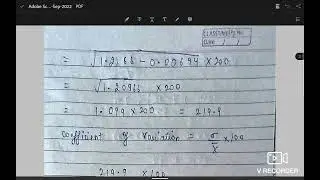 Adobe Sc... -Sep-2023 PDF
CLASSTIME Pg No.
Date / /
= √1.2166 - 0.00694 × 200
= √1.20966 × 200
= 1.099 × 200 = 219.9
Coefficient of Variation = σ/x̄ × 100
219.9 × 100
V RECORDER